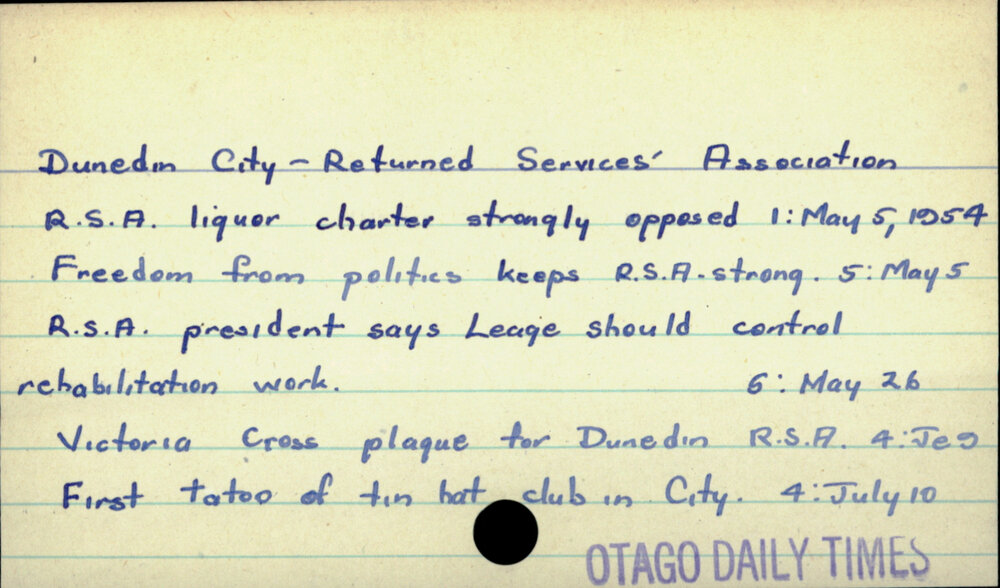 Dunedin City - Returned Services' Association
R.S.A. liquor charter strongly opposed 1: May 5, 1954
Freedom from politics keeps R.S.A. strong. 5: May 5
R.S.A. president says Leage should control
rehabilitation work. 6: May 26
Victoria Cross plaque for Dunedin R.S.A. 4: Je 9
First tatoo of tin hat club in City. 4: July 10
OTAGO DAILY TIMES